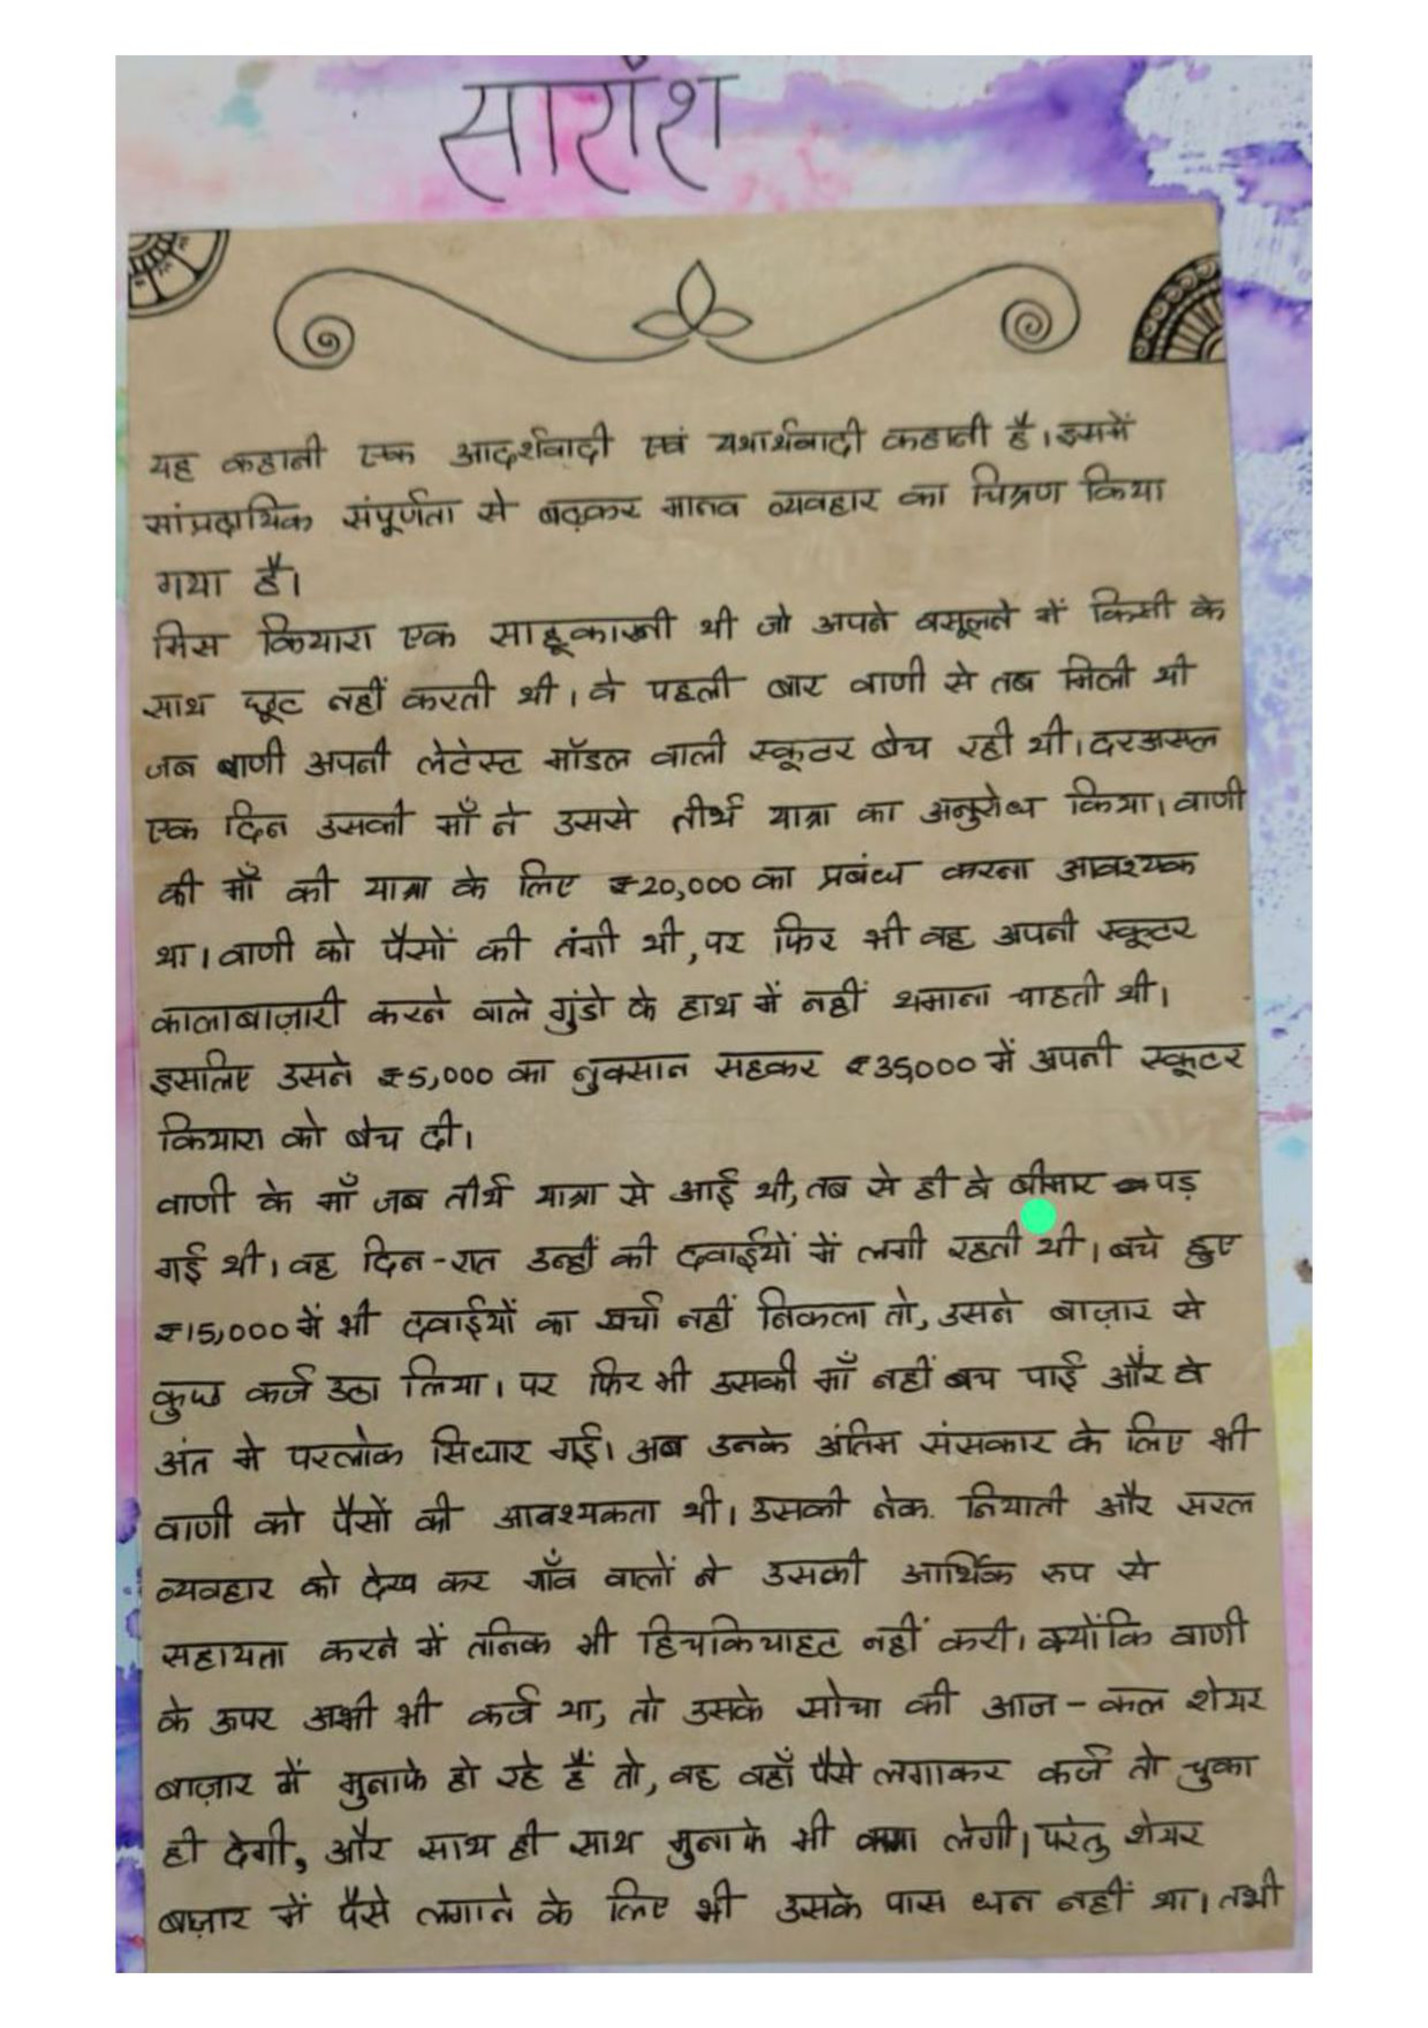 सारांश
यह कहानी एक आदर्शवादी एवं यथार्थवादी कहानी है। इसमें
सांप्रदायिक संपूर्णता से बढ़कर मानव व्यवहार का चित्रण किया
गया है।
मिस कियारा एक साहूकारनी थी जो अपने वसूलने में किसी के
साथ छूट नहीं करती थी। वे पहली बार वाणी से तब मिली थी
जब वाणी अपनी लेटेस्ट मॉडल वाली स्कूटर बेच रही थी। दरअसल
एक दिन उसकी माँ ने उससे तीर्थ यात्रा का अनुरोध किया। वाणी
की माँ की यात्रा के लिए ₹20,000 का प्रबंध करना आवश्यक
था। वाणी को पैसों की तंगी थी, पर फिर भी वह अपनी स्कूटर
कालाबाज़ारी करने वाले गुंडो के हाथ में नहीं थमाना चाहती थी।
इसलिए उसने ₹5,000 का नुक्सान सहकर ₹35,000 में अपनी स्कूटर
कियारा को बेच दी।
वाणी के माँ जब तीर्थ यात्रा से आई थी, तब से ही वे बीमार पड़
गई थी। वह दिन-रात उन्हीं की दवाईयों में लगी रहती थी। बचे हुए
₹15,000 में भी दवाईयों का खर्चा नहीं निकला तो, उसने बाज़ार से
कुछ कर्ज उठा लिया। पर फिर भी उसकी माँ नहीं बच पाई और वे
अंत मे परलोक सिधार गई। अब उनके अंतिम संसकार के लिए भी
वाणी को पैसों की आवश्यकता थी। उसकी नेक नियाती और सरल
व्यवहार को देख कर गाँव वालों ने उसकी आर्थिक रुप से
सहायता करने में तनिक भी हिचकिचाहट नहीं करी। क्योंकि वाणी
के ऊपर अभी भी कर्ज था, तो उसके सोचा की आज-कल शेयर
बाज़ार में मुनाफे हो रहे हैं तो, वह वहाँ पैसे लगाकर कर्ज तो चुका
ही देगी, और साथ ही साथ मुनाफे भी कमा लेगी। परंतु शेयर
बाज़ार में पैसे लगाने के लिए भी उसके पास धन नहीं था। तभी